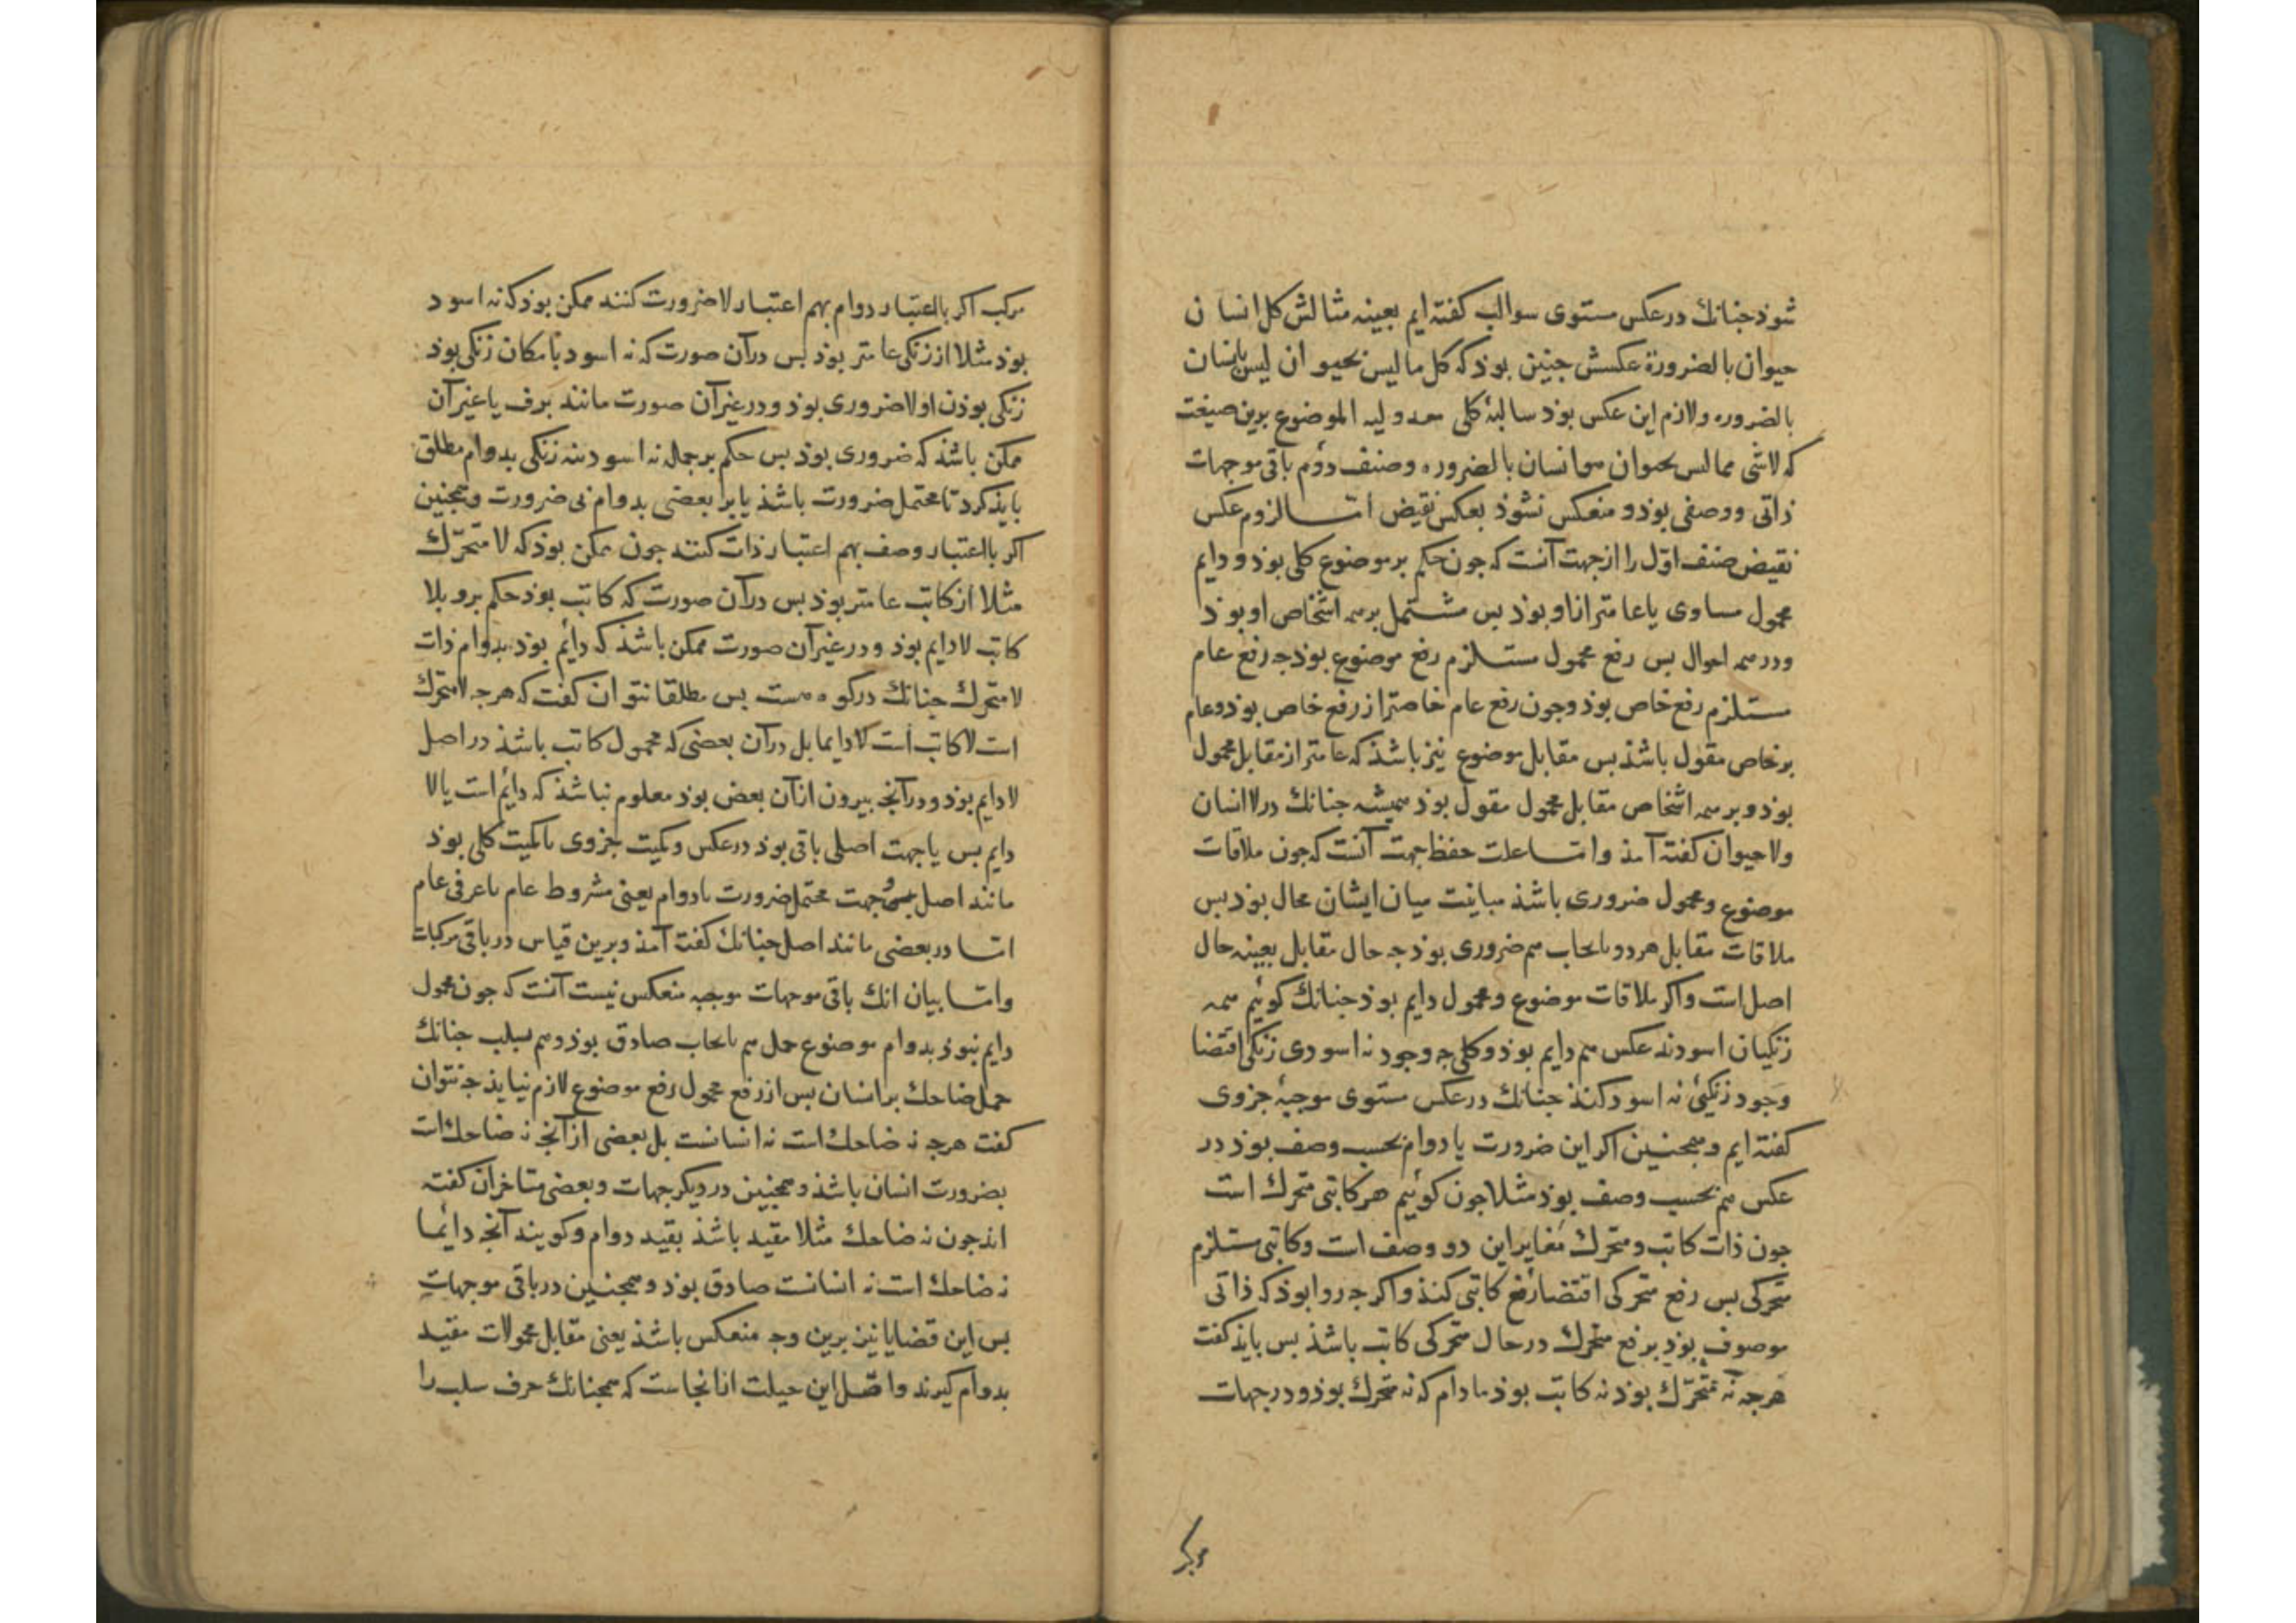 شوذ جنانك در عكس مستوى سوالب كفته ايم بعينه مثالش كل انسان
حيوان بالضرورة عكسش جنين بوذ كه كل ما ليس بحيوان ليس بانسان
بالضروره ولازم اين عكس بوذ سالبۀ كلى معدوليه الموضوع برين صيغت
كه لاشى مما ليس بحيوان هو انسان بالضروره وصنف دوم باقى موجهات
ذاتى ووصفى بوذ و منعكس نشوذ بعكس نقيض اما لزوم عكس
نقيض صنف اوّل را از جهت آنست كه جون حكم بر موضوع كلى بوذ و دايم
محمول مساوى يا عامتر ازاو بوذ بس مشتمل برهمه اشخاص او بوذ
ودر همه احوال بس رفع محمول مستلزم رفع موضوع بوذ جه رفع عام
مستلزم رفع خاص بوذ وجون رفع عام خاصتر از رفع خاص بوذ وعام
برخاص مقول باشذ بس مقابل موضوع نيز باشذ كه عامتر از مقابل محمول
بوذ و بر همه اشخاص مقابل محمول مقول بوذ هميشه جنانك در لاانسان
ولاحيوان كفته آمذ واما علت حفظ جهت آنست كه جون ملاقات
موضوع ومحمول ضرورى باشذ مباينت ميان ايشان محال بوذ بس
ملاقات مقابل هر دو بايجاب هم ضرورى بوذ جه حال مقابل بعينه حال
اصل است واكر ملاقات موضوع ومحمول دايم بوذ جنانك كوئيم همه
زنكيان اسودند عكس هم دايم بوذ وكلى جه وجود نه اسودى زنكى اقتضا
وجود زنكيئ نه اسود كنذ جنانك در عكس مستوى موجبۀ جزوى
كفته ايم و همجنين اكر اين ضرورت يا دوام بحسب وصف بوذ در
عكس هم بحسب وصف بوذ مثلا جون كوئيم هر كاتبى متحرك است
جون ذات كاتب و متحرك مغاير اين دو وصف است وكاتبى مستلزم
متحركى بس رفع متحركى اقتضا رفع كاتبى كنذ واكر جه روا بوذ كه ذاتى
موصوف بوذ برفع متحرك در حال متحركى كاتب باشذ بس بايذ كفت
هرجه نه متحرّك بوذ نه كاتب بوذ ما دام كه نه متحرك بوذ و در جهات
مركب
مركب اكر با اعتبار دوام بهم اعتبار لاضرورت كنند ممكن بوذ كه نه اسود
بوذ مثلا از زنكى عامتر بوذ بس در آن صورت كه نه اسود بامكان زنكى بوذ
زنكى بوذن او لاضرورى بوذ و در غير آن صورت مانند برف يا غير آن
ممكن باشذ كه ضرورى بوذ بس حكم بر جمله نه اسود بنه زنكى بدوام مطلق
بايذ كرد تا محتمل ضرورت باشذ يا بر بعضى بدوام بى ضرورت وهمجنين
اكر با اعتبار وصف بهم اعتبار ذات كنند جون ممكن بوذ كه لا متحرّك
مثلا از كاتب عامتر بوذ بس در آن صورت كه كاتب بوذ حكم برو بلا
كاتب لادايم بوذ و در غير آن صورت ممكن باشذ كه دائم بوذ بدوام ذات
لامتحرك جنانك در كوه هست بس مطلقا نتوان كفت كه هرجه لامتحرك
است لاكاتب است لادايما بل در آن بعضى كه محمول كاتب باشذ در اصل
لادايم بوذ و در آنجه بيرون از آن بعض بوذ معلوم نباشذ كه دائم است يا لا
دايم بس يا جهت اصلى باقى بوذ در عكس وكميت جزوى يا كميت كلى بوذ
مانند اصل وجهت محتمل ضرورت يا دوام يعنى مشروط عام يا عرفى عام
اما در بعضى مانند اصل جنانك كفته آمذ و برين قياس در باقى مركبات
واما بيان انك باقى موجهات موجبه منعكس نيست آنست كه جون محمول
دايم نبوذ بدوام موضوع حمل هم بايجاب صادق بوذ وهم بسلب جنانك
حمل ضاحك بر انسان بس از رفع محمول رفع موضوع لازم نيايذ جه نتوان
كفت هرجه نه ضاحك است نه انسانست بل بعضى از آنجه نه ضاحك است
بضرورت انسان باشذ و همجنين در ديكر جهات و بعضى متاخران كفته
اند جون نه ضاحك مثلا مقيد باشذ بقيد دوام وكويند آنجه دائما
نه ضاحك است نه انسانست صادق بوذ و همجنين در باقى موجهات
بس اين قضايا نيز برين وجه منعكس باشذ يعنى مقابل محمولات مقيد
بدوام كيرند واصل اين حيلت از انجاست كه همجنانك حرف سلب را